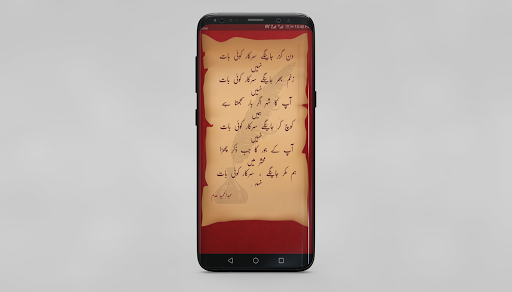 دن گزر جائینگے سرکار کوئی بات
نہیں
زخم بھر جائینگے سرکار کوئی بات
نہیں
آپ کا شہر اگر بار سمجھتا ہے
ہمیں
کوچ کر جائینگے سرکار کوئی بات
نہیں
آپ کے جور کا جب ذکر چھڑا
محشر میں
ہم مکر جائینگے ، سرکار کوئی بات
نہیں
عبدالحمید عدم